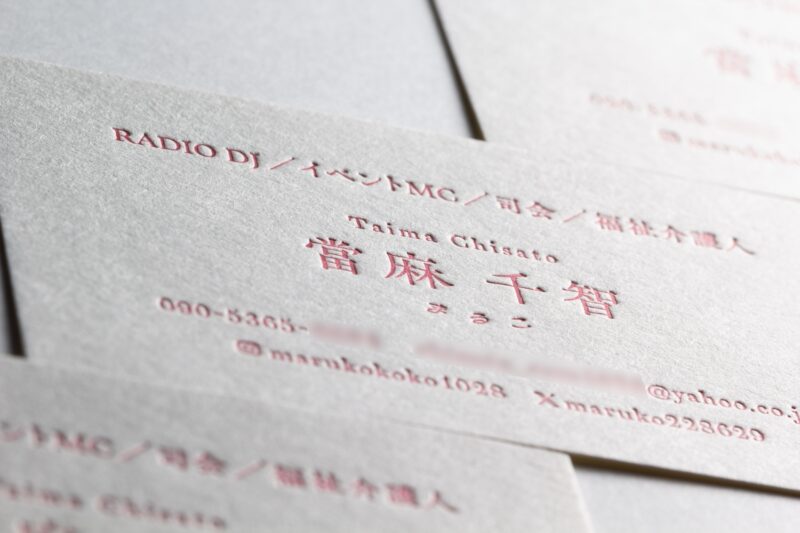 RADIO DJ／イベントMC／司会／福祉介護人
Taima Chisato
當麻 千智
まるこ
090-5365- @yahoo.co.j
@marukokoko1028 Xmaruko228629
ントMC／司会／福祉介護人
Taima Chisato